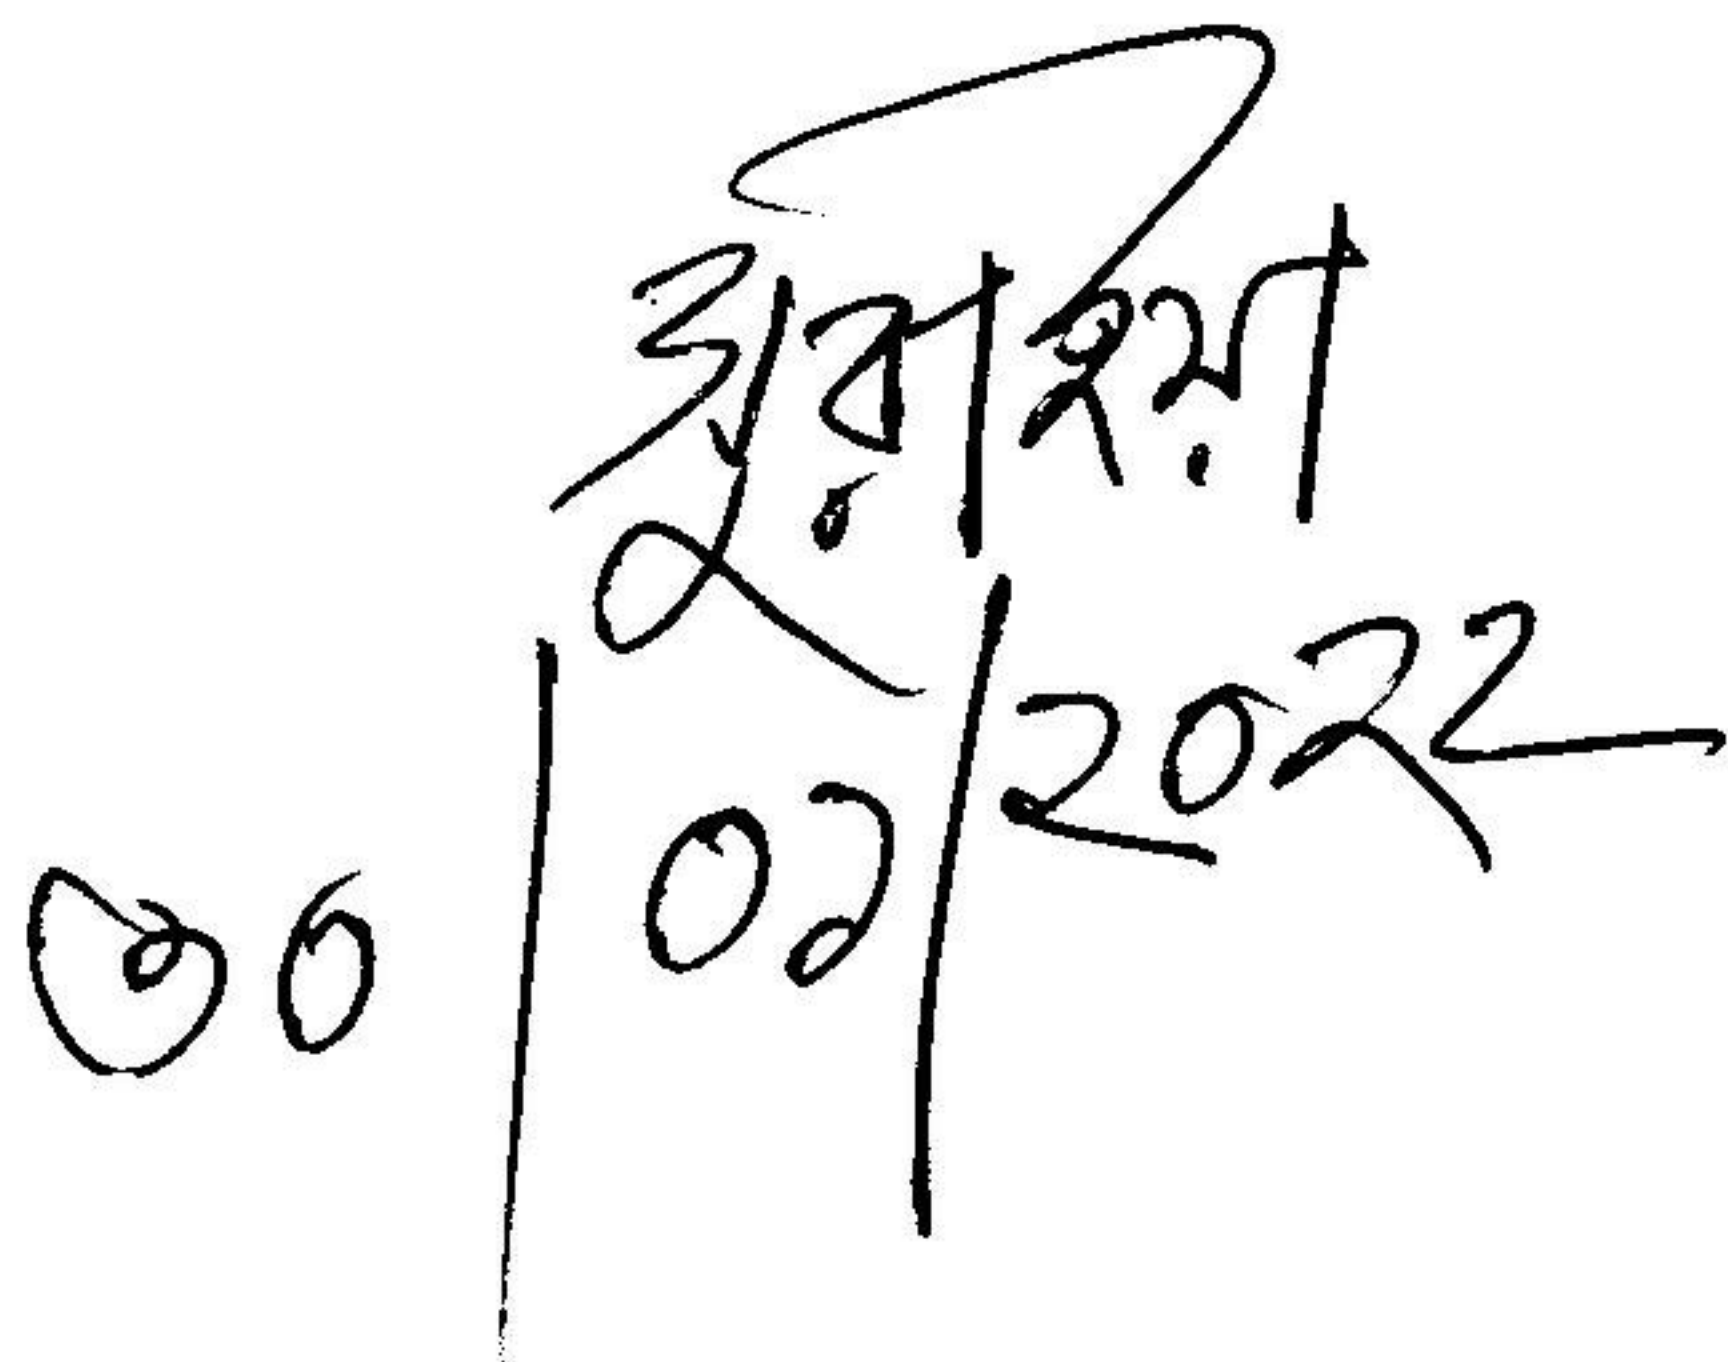 সুরাইয়া
৩০/০১/২০২২